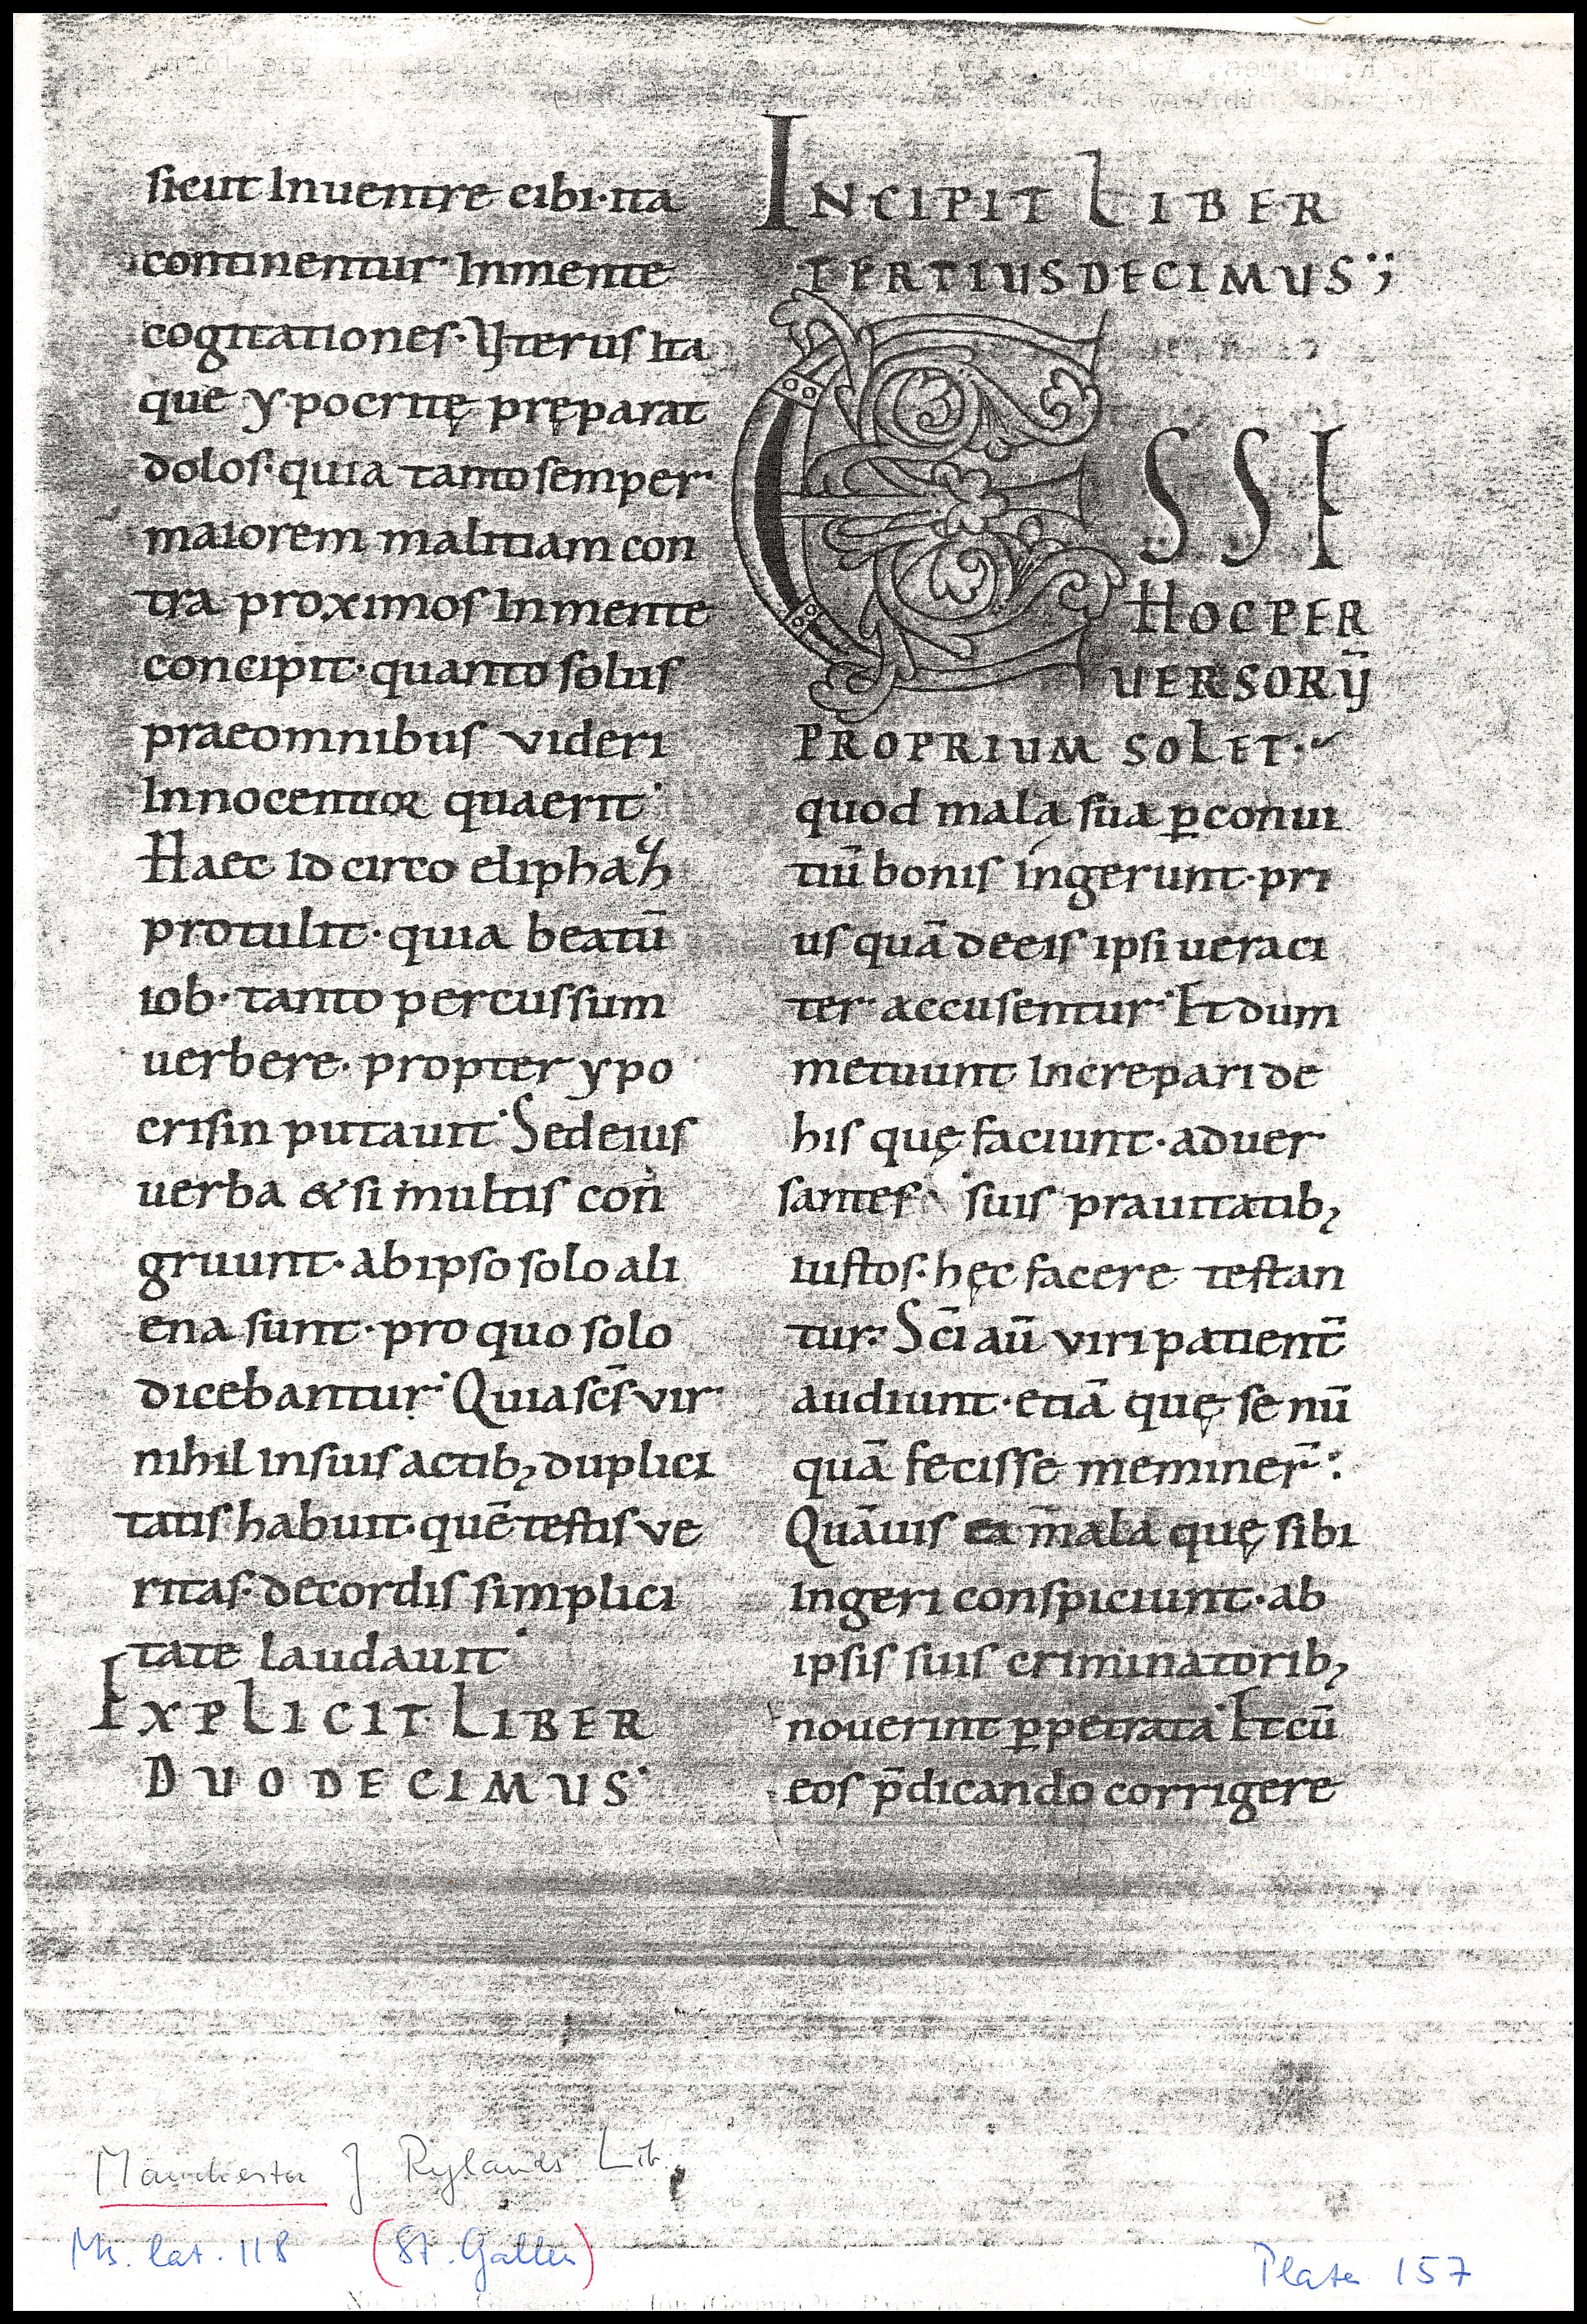 sicut Inuentre cibi·ita
continentur· Inmente
cogitationes· Vterus ita
que ypocritę pręparat
dolos·quia tanto semper
maiorem malitiam con
tra proximos Inmente
concipit·quanto solus
praeomnibus videri
Innocentior quaerit·
Haec idcirco eliphaz
protulit·quia beatū
iob·tanto percussum
uerbere·propter ypo
crisin putauit· Sedeius
verba & si multis con
gruunt·abipso solo ali
ena sunt·pro quo solo
dicebantur· Quia scs̄ vir
nihil insuis actib; duplici
tatis habuit·quē testis ve
ritas·decordis simplici
tate laudauit·
EXPLICIT LIBER
DUODECIMUS·
INCIPIT LIBER
TERTIUSDECIMUS
ESSE
HOCPER
UERSORŪ
PROPRIUM SOLET·
quod mala sua ꝑconui
tiū bonis ingerunt·pri
us quā deeis ipsi ueraci
ter accusentur· Et dum
metuunt Increpari de
his quę faciunt·aduer
santes suis prauitatib;
iustos·hęc facere testan
tur· Sc̄i aū viri patient̄
audiunt·etiā quę se nū
quā fecisse meminer̄
Quāuis ea mala quę sibi
Ingeri conspiciunt·ab
ipsis suis criminatorib;
nouerint ꝑpetrata· Et cū
eos p̄dicando corrigere
Manchester J Rylands Lib.
Ms. lat. 118 (St. Gallen)
Plate 157